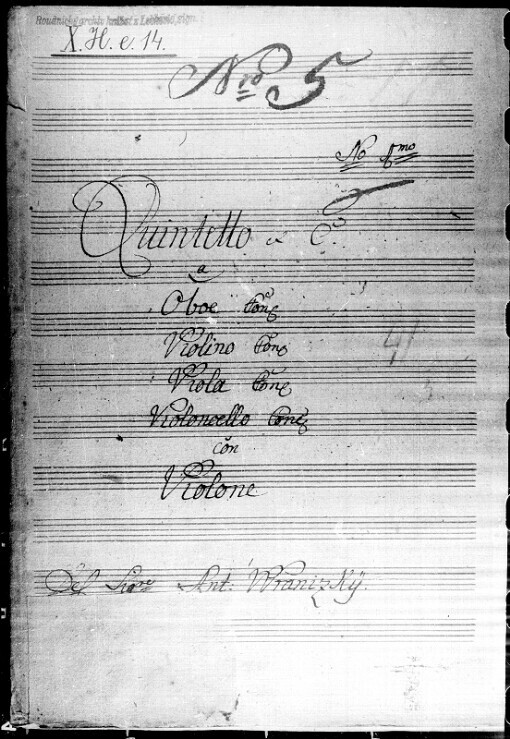 Roudnický archiv
X. H. e. 14.
Nro 5
No 1mo
Quintetto in C.
a
Oboe Conc
Violino Conc
Viola Conc
Violoncello Conc
con
Violone.
Del Sigre Ant: Wranizký.